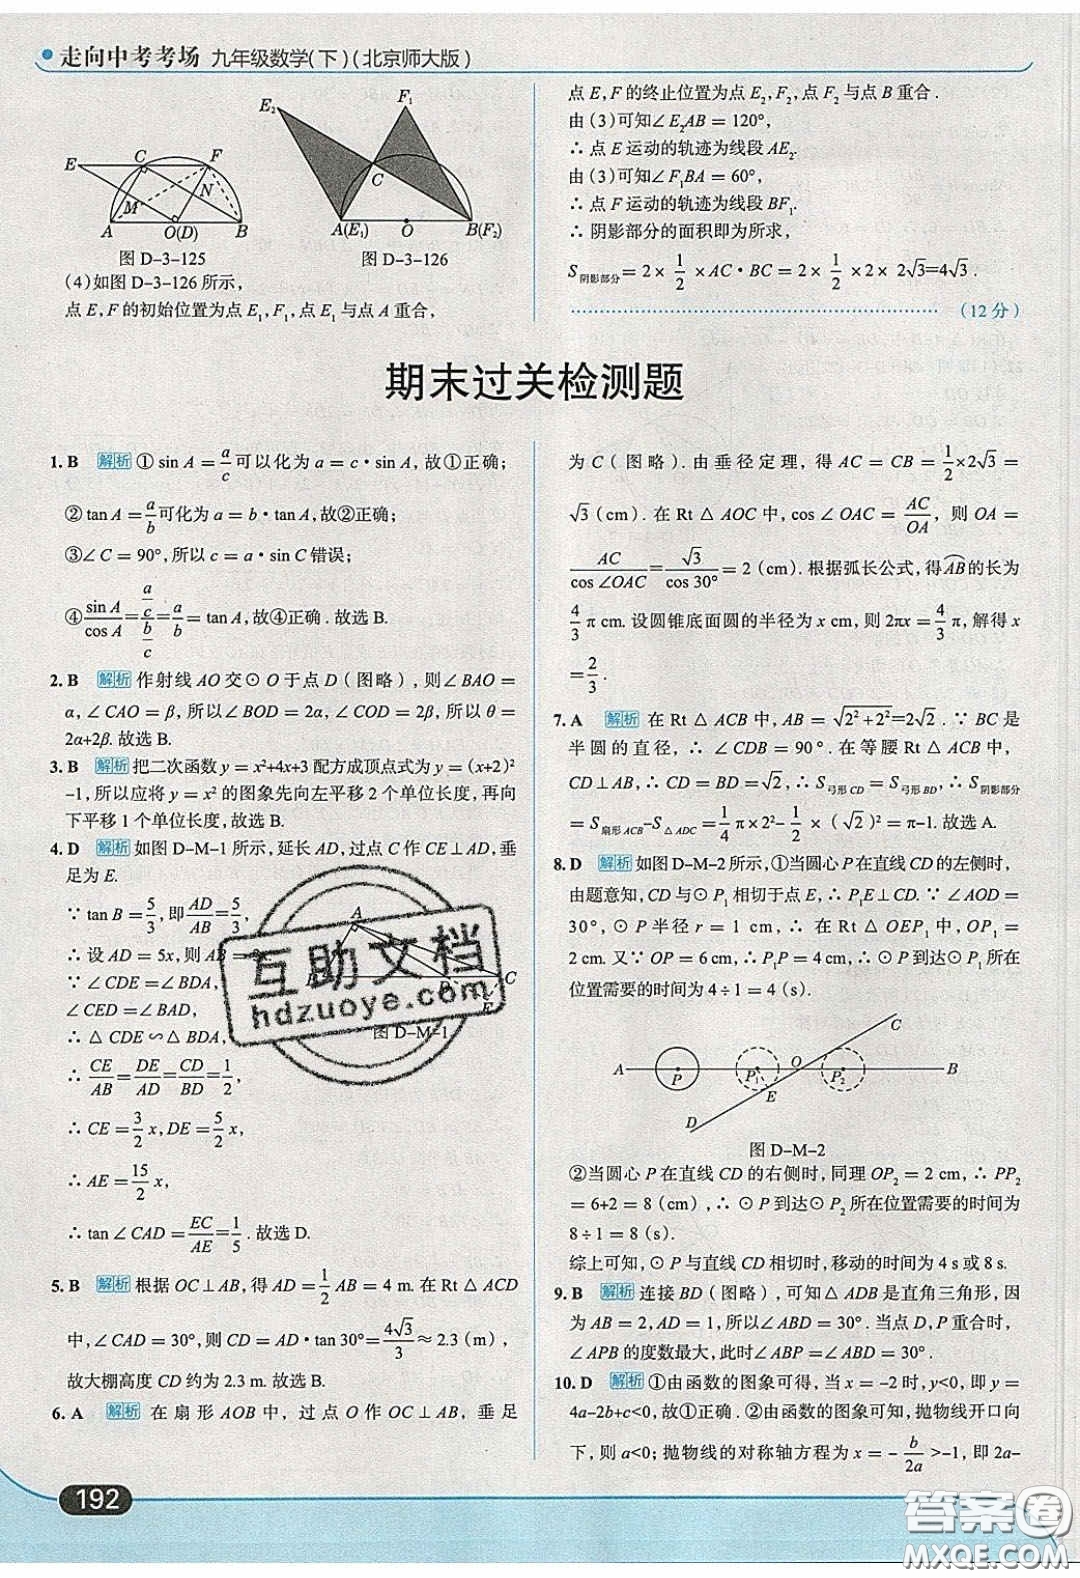 走向中考考场 九年级数学(下)(北京师大版)
E C F
M N
A O(D) B
图 D-3-125
E₂ F₁
C
A(E₁) O B(F₂)
图 D-3-126
(4)如图 D-3-126 所示，
点 E,F 的初始位置为点 E₁,F₁,点 E₁与点 A 重合，
点 E,F 的终止位置为点 E₂,F₂,点 F₂与点 B 重合．
由(3)可知∠E₂AB＝120°，
∴ 点 E 运动的轨迹为线段 AE₂．
由(3)可知∠F₁BA＝60°，
∴ 点 F 运动的轨迹为线段 BF₁．
∴ 阴影部分的面积即为所求，
S阴影部分＝2×1/2×AC·BC＝2×1/2×2×2√3=4√3．
(12 分)
期末过关检测题
1. B 解析 ①sin A＝a/c可以化为 a＝c·sin A,故①正确；
②tan A＝a/b可化为 a＝b·tan A,故②正确；
③∠C＝90°,所以 c＝a·sin C 错误；
④sin A/cos A＝(a/c)/(b/c)＝a/b＝tan A,故④正确．故选 B.
2. B 解析 作射线 AO 交⊙O 于点 D(图略),则∠BAO＝
α,∠CAO＝β,所以∠BOD＝2α,∠COD＝2β,所以 θ＝
2α+2β. 故选 B.
3. B 解析 把二次函数 y＝x²+4x+3 配方成顶点式为 y＝(x+2)²
-1,所以应将 y＝x² 的图象先向左平移 2 个单位长度,再向
下平移 1 个单位长度,故选 B.
4. D 解析 如图 D-M-1 所示,延长 AD,过点 C 作 CE⊥AD,垂
足为 E.
∵ tan B＝5/3,即AD/AB＝5/3,
∴ 设 AD＝5x,则 AB＝
∵ ∠CDE＝∠BDA,
∠CED＝∠BAD,
∴ △CDE∽△BDA,
∴ CE/AB＝DE/AD＝CD/BD＝1/2,
∴ CE＝3/2 x,DE＝5/2 x,
∴ AE＝15/2 x,
∴ tan∠CAD＝EC/AE＝1/5. 故选 D.
A
B D C
E
图 D-M-1
5. B 解析 根据 OC⊥AB,得 AD＝1/2 AB＝4 m. 在 Rt△ACD
中,∠CAD＝30°,则 CD＝AD·tan 30°＝4√3/3≈2.3(m),
故大棚高度 CD 约为 2.3 m. 故选 B.
6. A 解析 在扇形 AOB 中,过点 O 作 OC⊥AB,垂足
为 C(图略). 由垂径定理,得 AC＝CB＝1/2×2√3＝
√3(cm). 在 Rt△AOC 中,cos∠OAC＝AC/OA,则 OA＝
AC/cos∠OAC＝√3/cos 30°＝2(cm). 根据弧长公式,得AB的长为
4/3 π cm. 设圆锥底面圆的半径为 x cm,则 2πx＝4/3 π,解得 x
＝2/3.
7. A 解析 在 Rt△ACB 中,AB＝√(2²+2²)=2√2. ∵ BC 是
半圆的直径,∴ ∠CDB＝90°. 在等腰 Rt△ACB 中,
CD⊥AB,∴ CD＝BD＝√2,∴ S弓形CD＝S弓形BD,∴ S阴影部分
＝S扇形ACB-S△ADC＝1/4 π×2²-1/2×(√2)²＝π-1. 故选 A.
8. D 解析 如图 D-M-2 所示,①当圆心 P 在直线 CD 的左侧时,
由题意知,CD 与⊙P₁ 相切于点 E,∴ P₁E⊥CD. ∵ ∠AOD＝
30°,⊙P 半径 r＝1 cm,∴ 在 Rt△OEP₁ 中,OP₁＝
2 cm. 又∵ OP＝6 cm,∴ P₁P＝4 cm,∴ ⊙P 到达⊙P₁所在
位置需要的时间为 4÷1＝4(s).
A P P₁ O P₂ B
C
E
D
图 D-M-2
②当圆心 P 在直线 CD 的右侧时,同理 OP₂＝2 cm,∴ PP₂
＝6+2＝8(cm),∴ ⊙P 到达⊙P₂所在位置需要的时间为
8÷1＝8(s).
综上可知,⊙P 与直线 CD 相切时,移动的时间为 4 s 或 8 s.
9. B 解析 连接 BD(图略),可知△ADB 是直角三角形,因
为 AB＝2,AD＝1,所以∠ABD＝30°. 当点 D,P 重合时,
∠APB 的度数最大,此时∠ABP＝∠ABD＝30°.
10. D 解析 ①由函数的图象可得,当 x＝-2 时,y<0,即 y＝
4a-2b+c<0,故①正确. ②由函数的图象可知,抛物线开口向
下,则 a<0;抛物线的对称轴方程为 x＝-b/2a>-1,即 2a-
192
互助文档
hdzuoye.com
答案圈
MXQE.COM